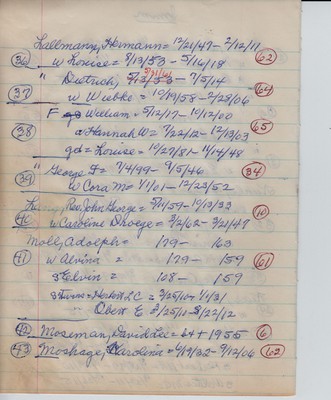 Lallmann, Hermann = 12/21/47 - 2/12/11
36 w Louise = 8/13/53 - 5/16/18 62
" Dietrich, 5/31/61 - 7/5/14
37 w Wiebke = 10/19/58 - 2/28/06 64
F William = 5/12/17 - 10/12/00
38 a Hannah W = 7/22/12 - 12/13/63 65
gd = Louise = 10/27/81 - 11/14/48
" George F = 7/4/99 - 9/5/46 34
39 w Cora M = 1/1/01 - 12/23/52
Rev. John George = 5/11/59 - 10/13/33 10
40 w Caroline Droege = 3/2/62 - 3/21/47
Moll, Adolph = 179 - 163
41 w Alvina = 179 - 159 61
s Elvin = 108 - 159
s Twins = Herbert L C = 3/25/10 - 1/1/21
Obert E 3/25/11 - 8/22/12
42 Moseman, David Lee = b + 1955 6
43 Moshage, Karolina = 4/19/32 - 9/12/06 62